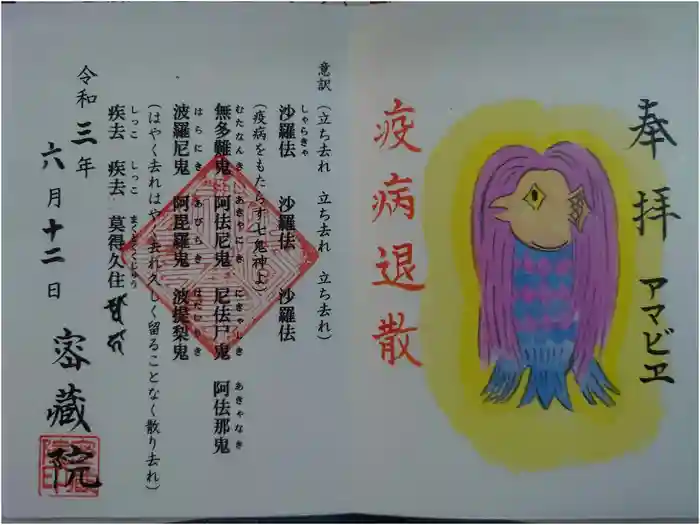 奉拝 アマビヱ
疫病退散
意訳 (立ち去れ 立ち去れ 立ち去れ)
しゃらきゃ
沙羅佉 沙羅佉 沙羅佉
(疫病をもたらす七鬼神よ)
むたなんき あきゃにき にきゃしき あきゃなき
無多難鬼 阿佉尼鬼 尼佉尸鬼 阿佉那鬼
はらにき あびらき はだいりき
波羅尼鬼 阿毘羅鬼 波提梨鬼
(はやく去れはやく去れ久しく留ることなく散り去れ)
しっこ しっこ まくとくくじゅう
疾去 疾去 莫得久住
令和三年
六月十二日 密藏院